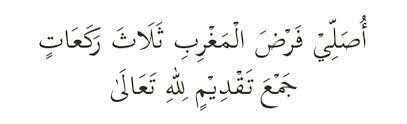 أُصَلِّيْ فَرْضَ الْمَغْرِبِ ثَلَاثَ رَكَعَاتٍ
جَمْعَ تَقْدِيْمٍ لِلّٰهِ تَعَالَىٰ